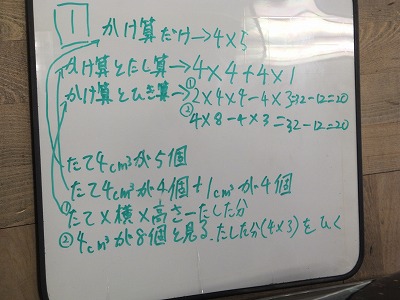 1
かけ算だけ→4×5
かけ算とたし算→4×4+4×1
かけ算とひき算→①2×4×4-4×3=32-12=20
②4×8-4×3=32-12=20
たて4cm³が5個
たて4cm³が4個+1cm³が4個
①たて×横×高さ-たした分
②4cm³が8個と見る、たした分(4×3)をひく